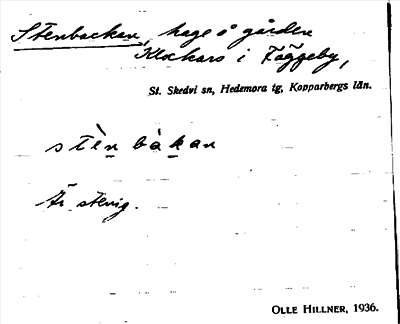 Stenbackan, hage å gården
Klockars i Fäggeby,
St. Skedvi sn, Hedemora tg, Kopparbergs län.
stèn bàkan
Är stenig.
OLLE HILLNER, 1936.